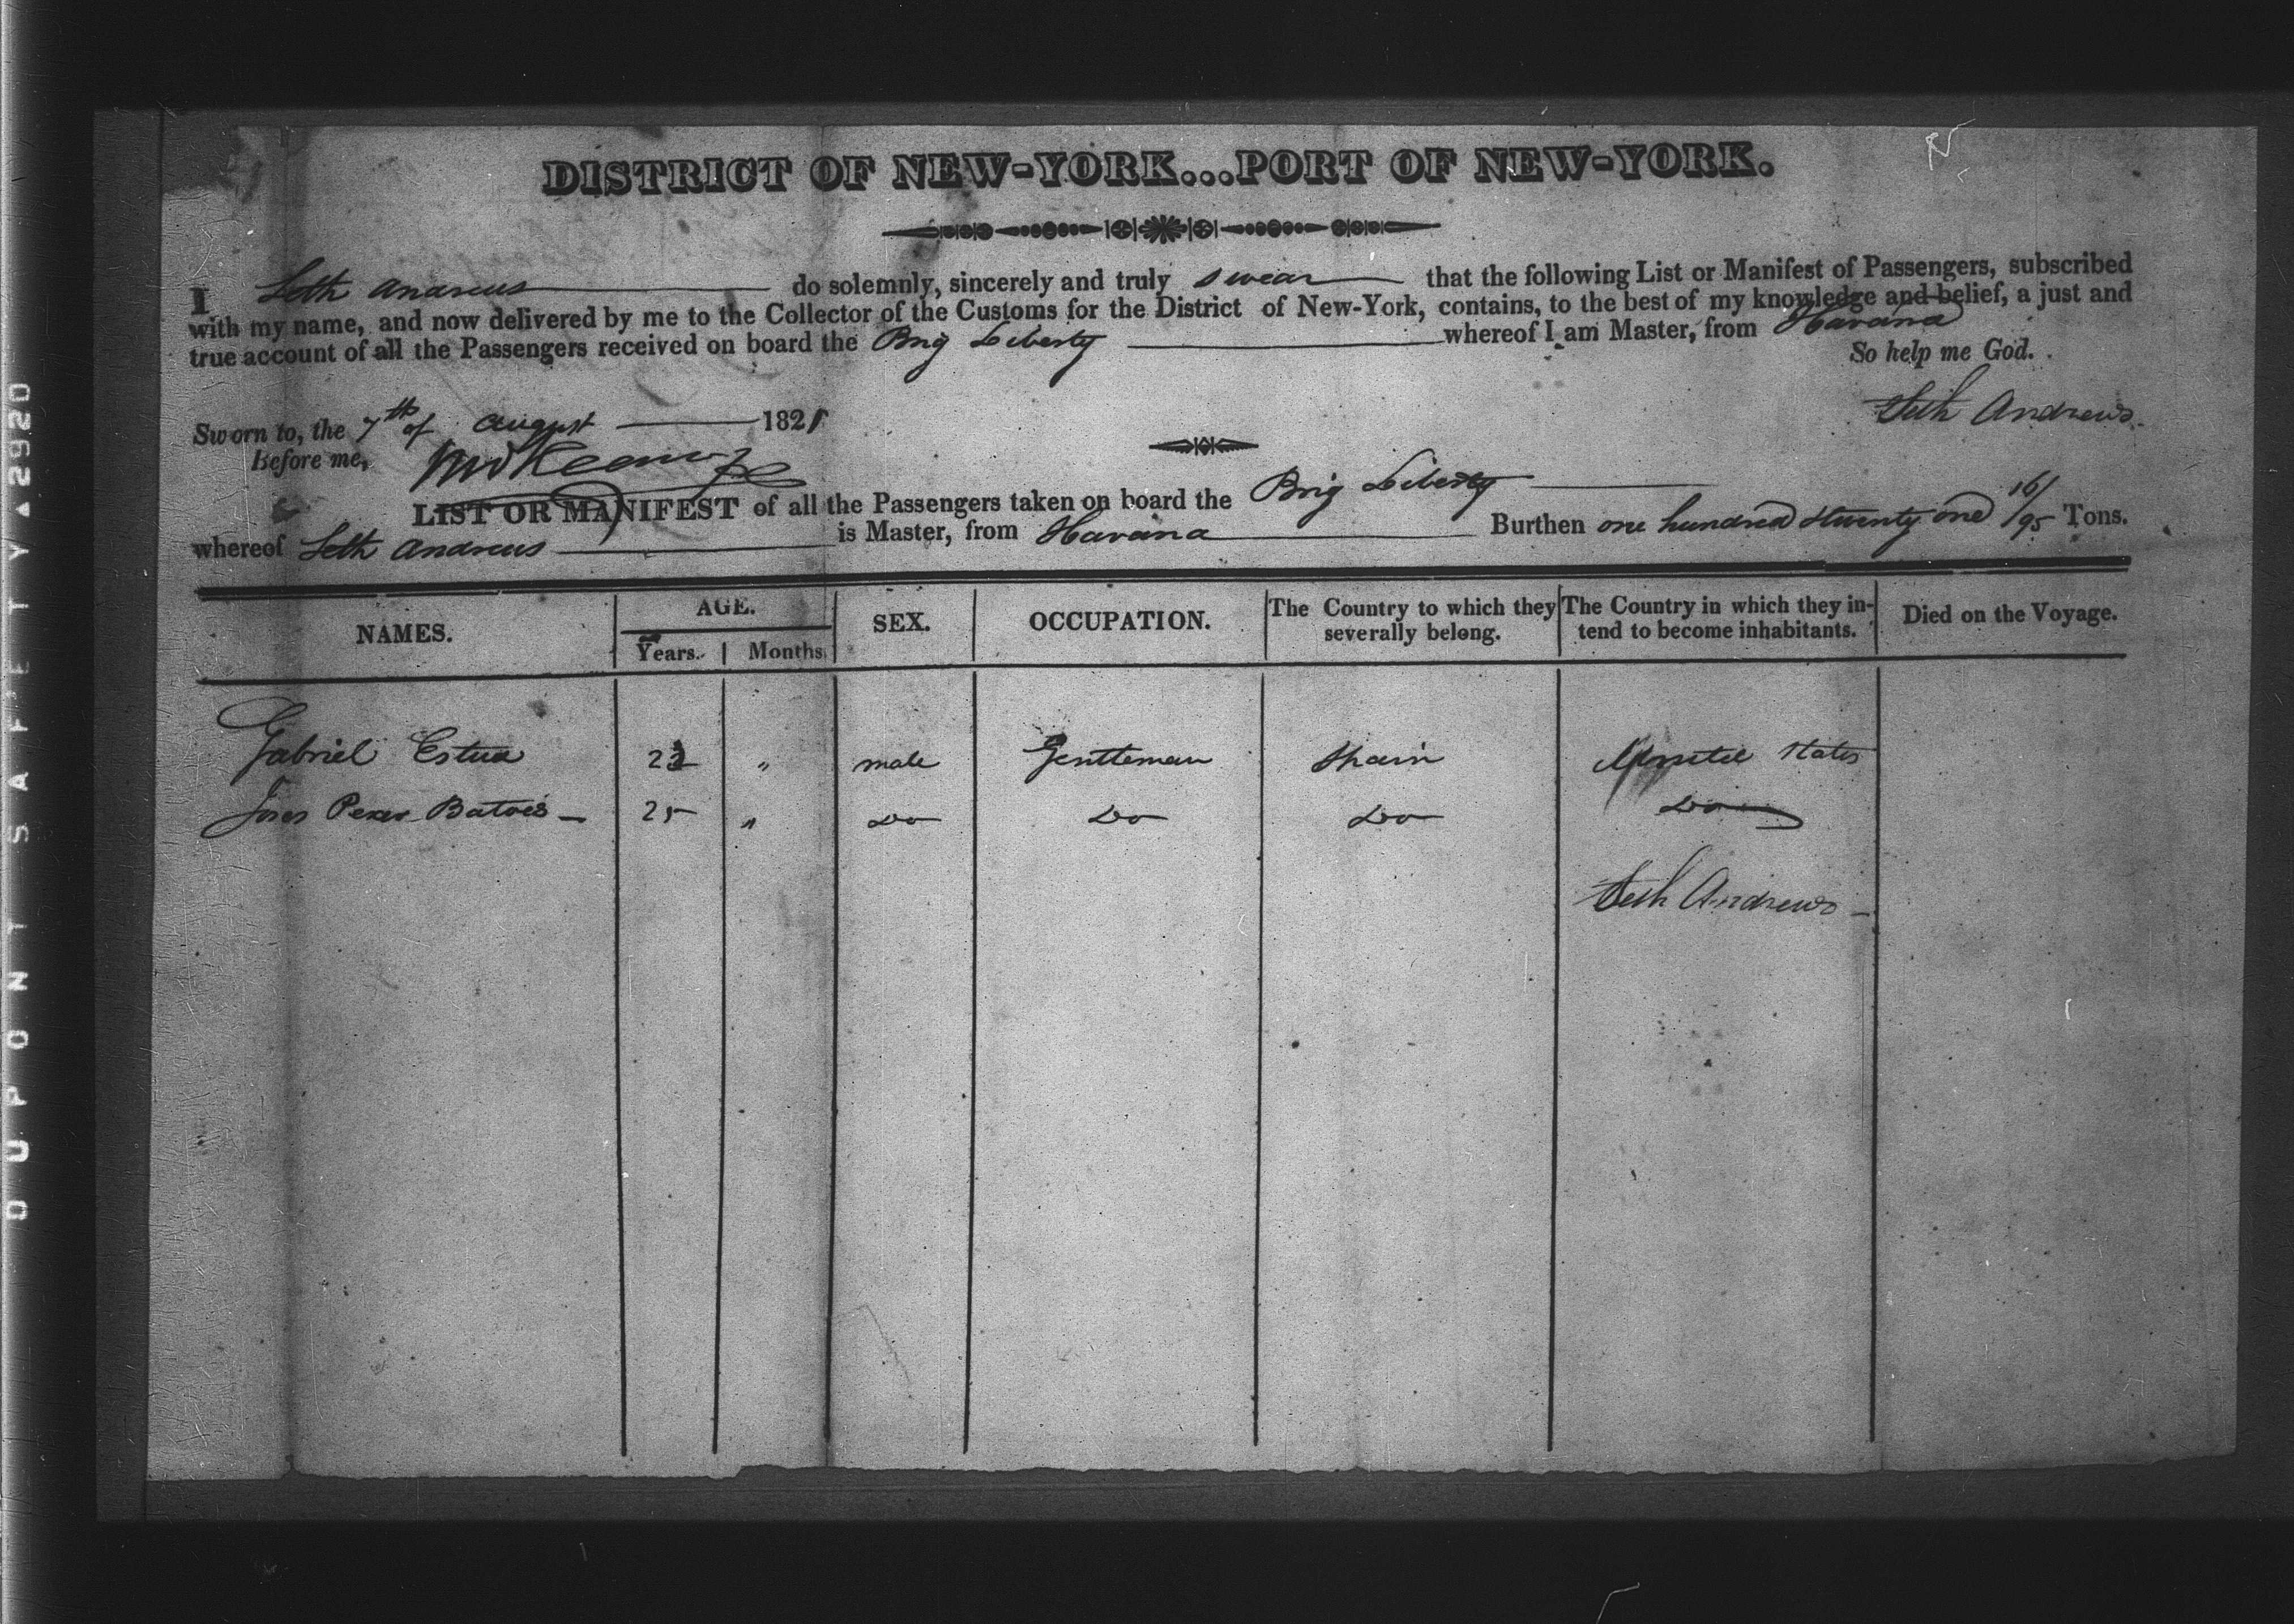 DISTRICT OF NEW-YORK...PORT OF NEW-YORK.
I Seth Andrews do solemnly, sincerely and truly swear that the following List or Manifest of Passengers, subscribed
with my name, and now delivered by me to the Collector of the Customs for the District of New-York, contains, to the best of my knowledge and belief, a just and
true account of all the Passengers received on board the Brig Liberty whereof I am Master, from Havana
So help me God.
Sworn to, the 7th of August 1821
Seth Andrews
Before me,
LIST OR MANIFEST of all the Passengers taken on board the Brig Liberty
whereof Seth Andrews is Master, from Havana Burthen one hundred & twenty one 16/95 Tons.
NAMES. AGE. Years. Months. SEX. OCCUPATION. The Country to which they severally belong. The Country in which they intend to become inhabitants. Died on the Voyage.
Gabriel 23 " male Gentleman Spain United States
25 " Do Do Do Do
Seth Andrews
DUPONT SAFETY A2920